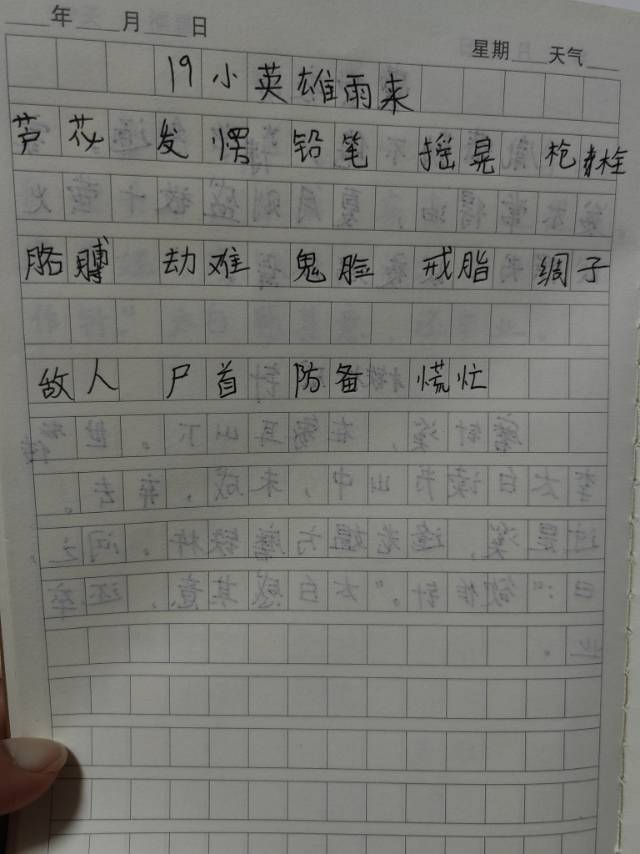 年 月 日
星期 天气
19 小英雄雨来
芦花 发愣 铅笔 摇晃 枪栓
胳膊 劫难 鬼脸 戒脂 绸子
敌人 尸首 防备 慌忙